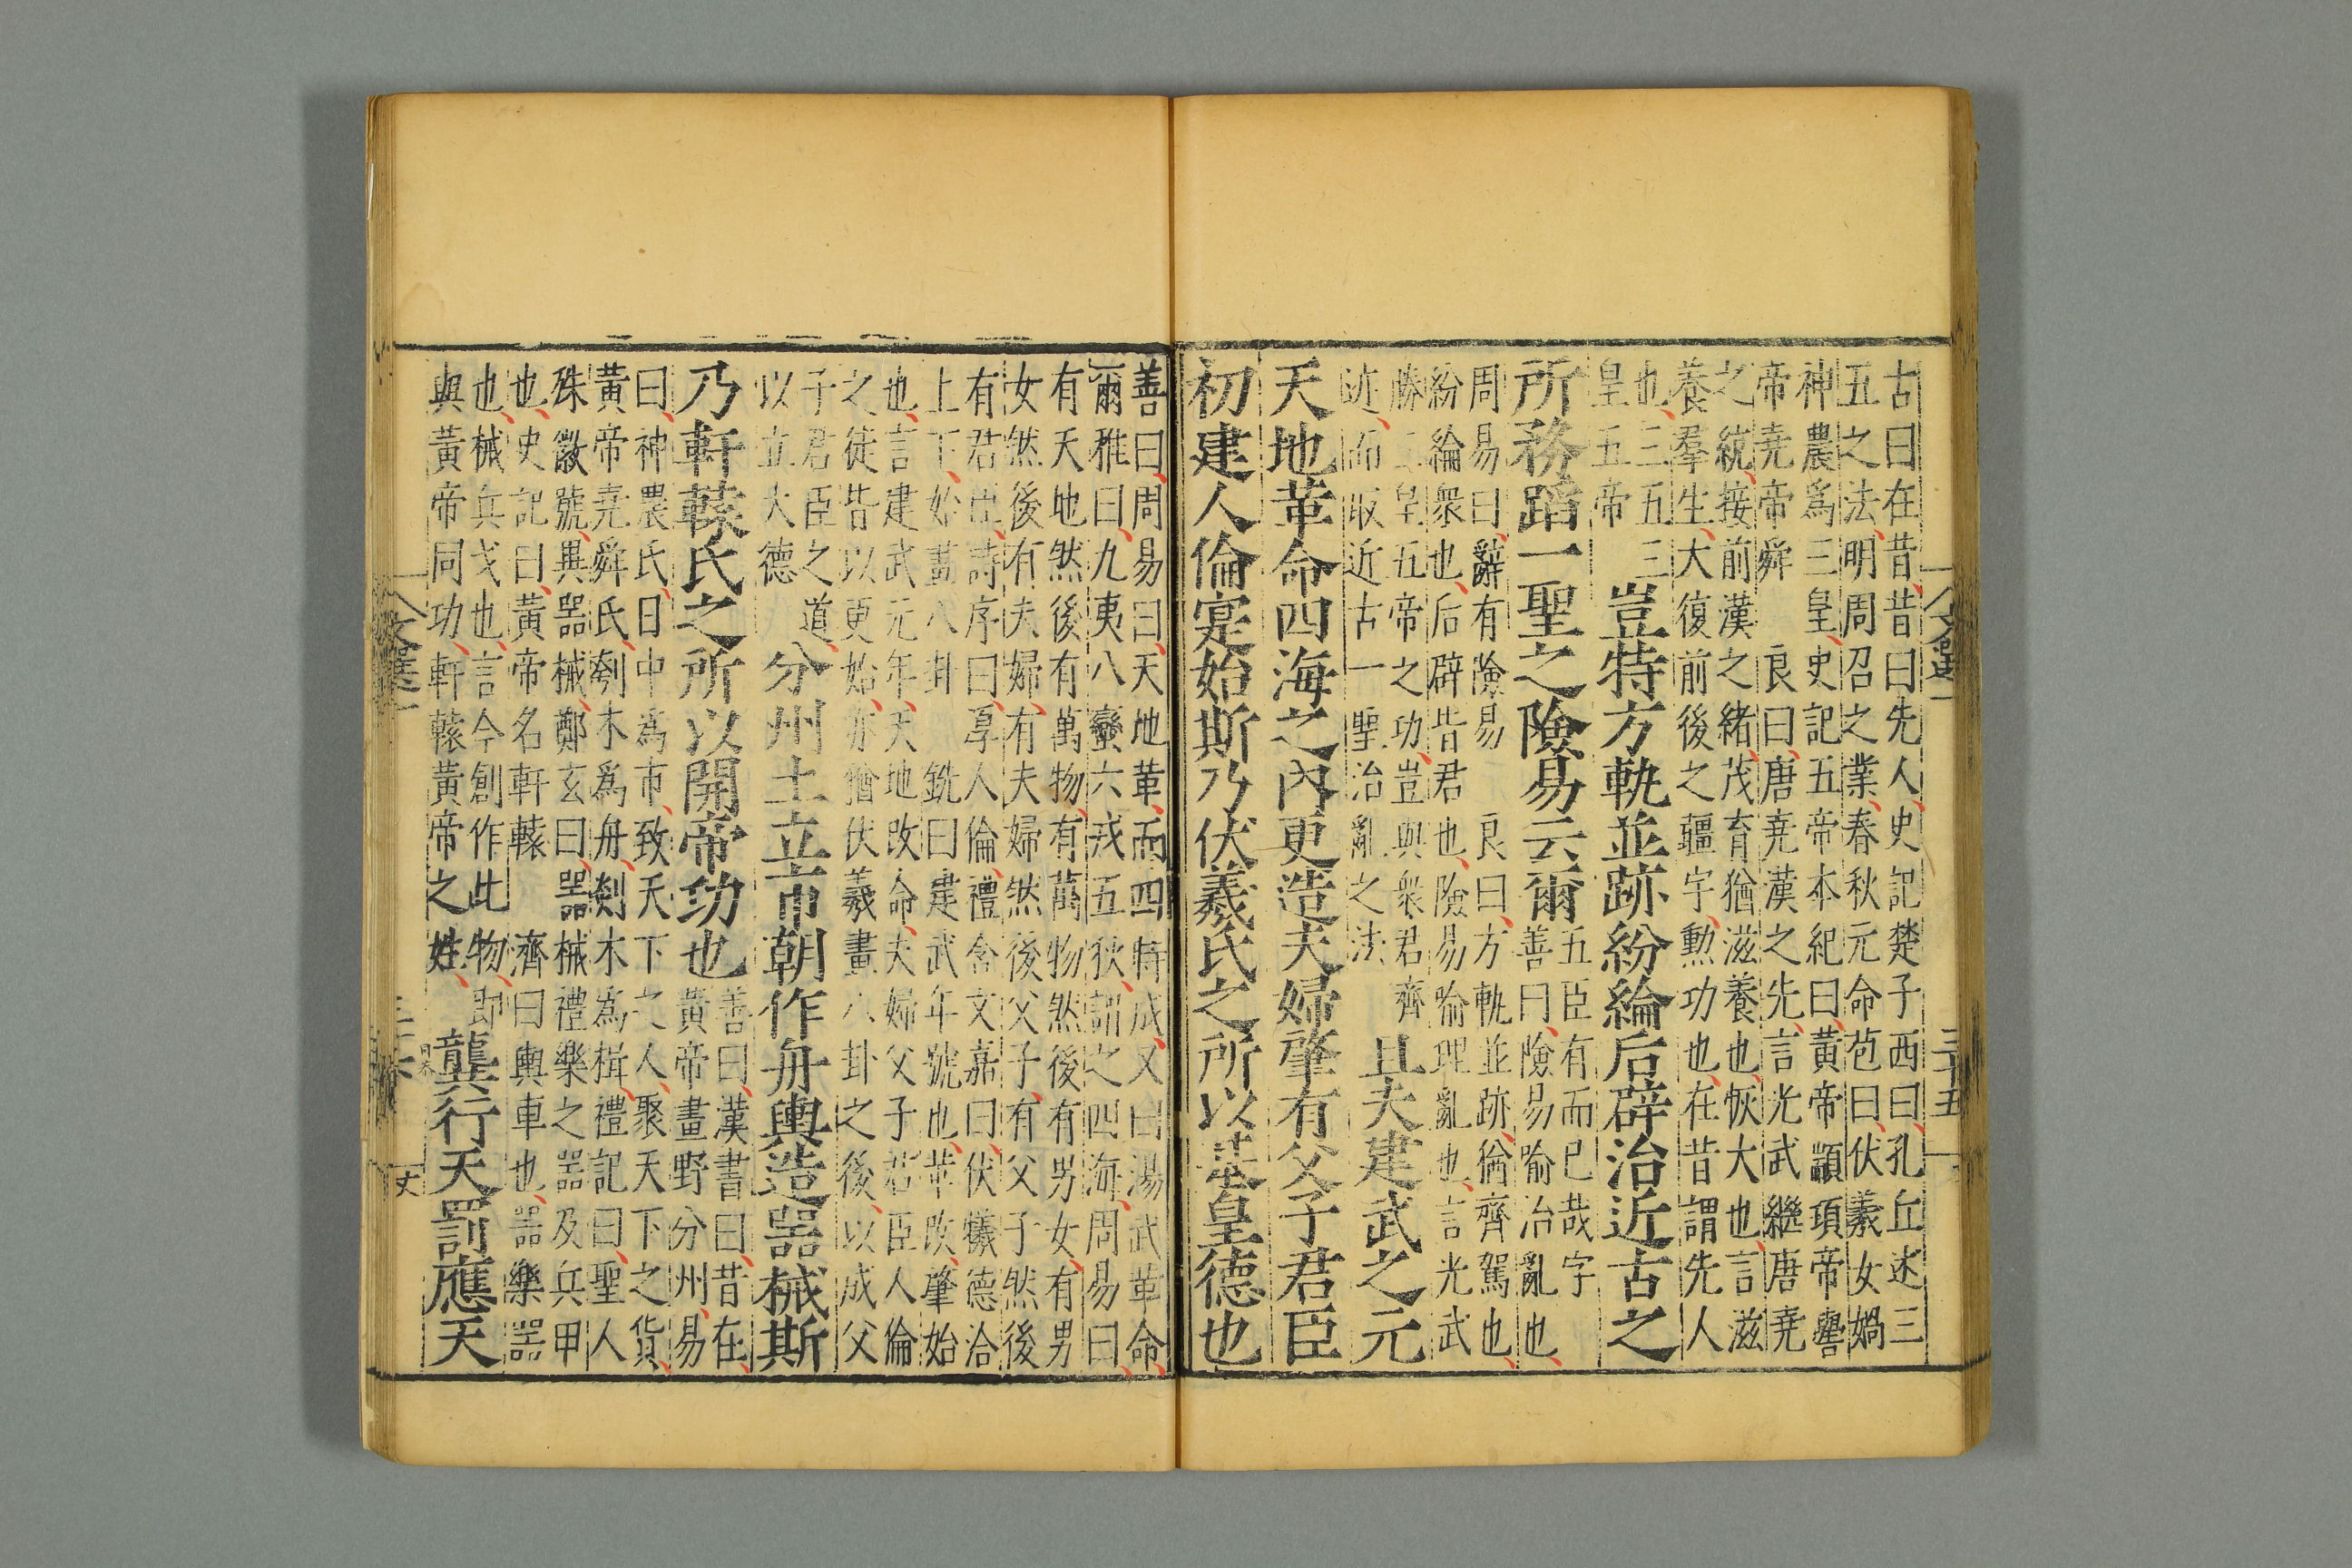 古曰在昔昔曰先人史記楚子西曰孔丘述三
五之法明周召之業春秋元命苞曰伏羲女媧
神農爲三皇史記五帝本紀曰黃帝顓頊帝嚳
帝堯帝舜 良曰唐堯漢之先言光武繼唐堯
之統接前漢之緒茂育猶滋養也恢大也言滋
養羣生大復前後之疆宇勲功也在昔謂先人
也三五三
皇五帝
豈特方軌並跡紛綸后辟治近古之
所務蹈一聖之險易云爾
五臣有而已哉字
善曰險易喻治亂也
周易曰辭有險易 良曰方軌並跡猶齊駕也
紛綸衆也后辟皆君也險易喻理亂也言光武
勝三皇五帝之功豈與衆君齊
迹而取近古一聖治亂之法
且夫建武之元
天地革命四海之內更造夫婦肇有父子君臣
初建人倫寔始斯乃伏羲氏之所以基皇德也
善曰周易曰天地革而四時成又曰湯武革命
爾雅曰九夷八蠻六戎五狄謂之四海周易曰
有天地然後有萬物有萬物然後有男女有男
女然後有夫婦有夫婦然後父子有父子然後
有君臣詩序曰厚人倫禮含文嘉曰伏犧德洽
上下始畫八卦 銑曰建武年號也革改肇始
也言建武元年天地改命夫婦父子君臣人倫
之徒皆以更始亦猶伏羲畫八卦之後以成父
子君臣之道
以立大德
分州土立市朝作舟輿造器械斯
乃軒轅氏之所以開帝功也
善曰漢書曰昔在
黃帝畫野分州易
曰神農氏日中爲市致天下之人聚天下之貨
黃帝堯舜氏刳木爲舟剡木爲楫禮記曰聖人
殊徽號異器械鄭玄曰器械禮樂之器及兵甲
也史記曰黃帝名軒轅 濟曰輿車也器樂器
也械兵戈也言今創作此物即
與黃帝同功軒轅黃帝之姓
龔行天罰應天